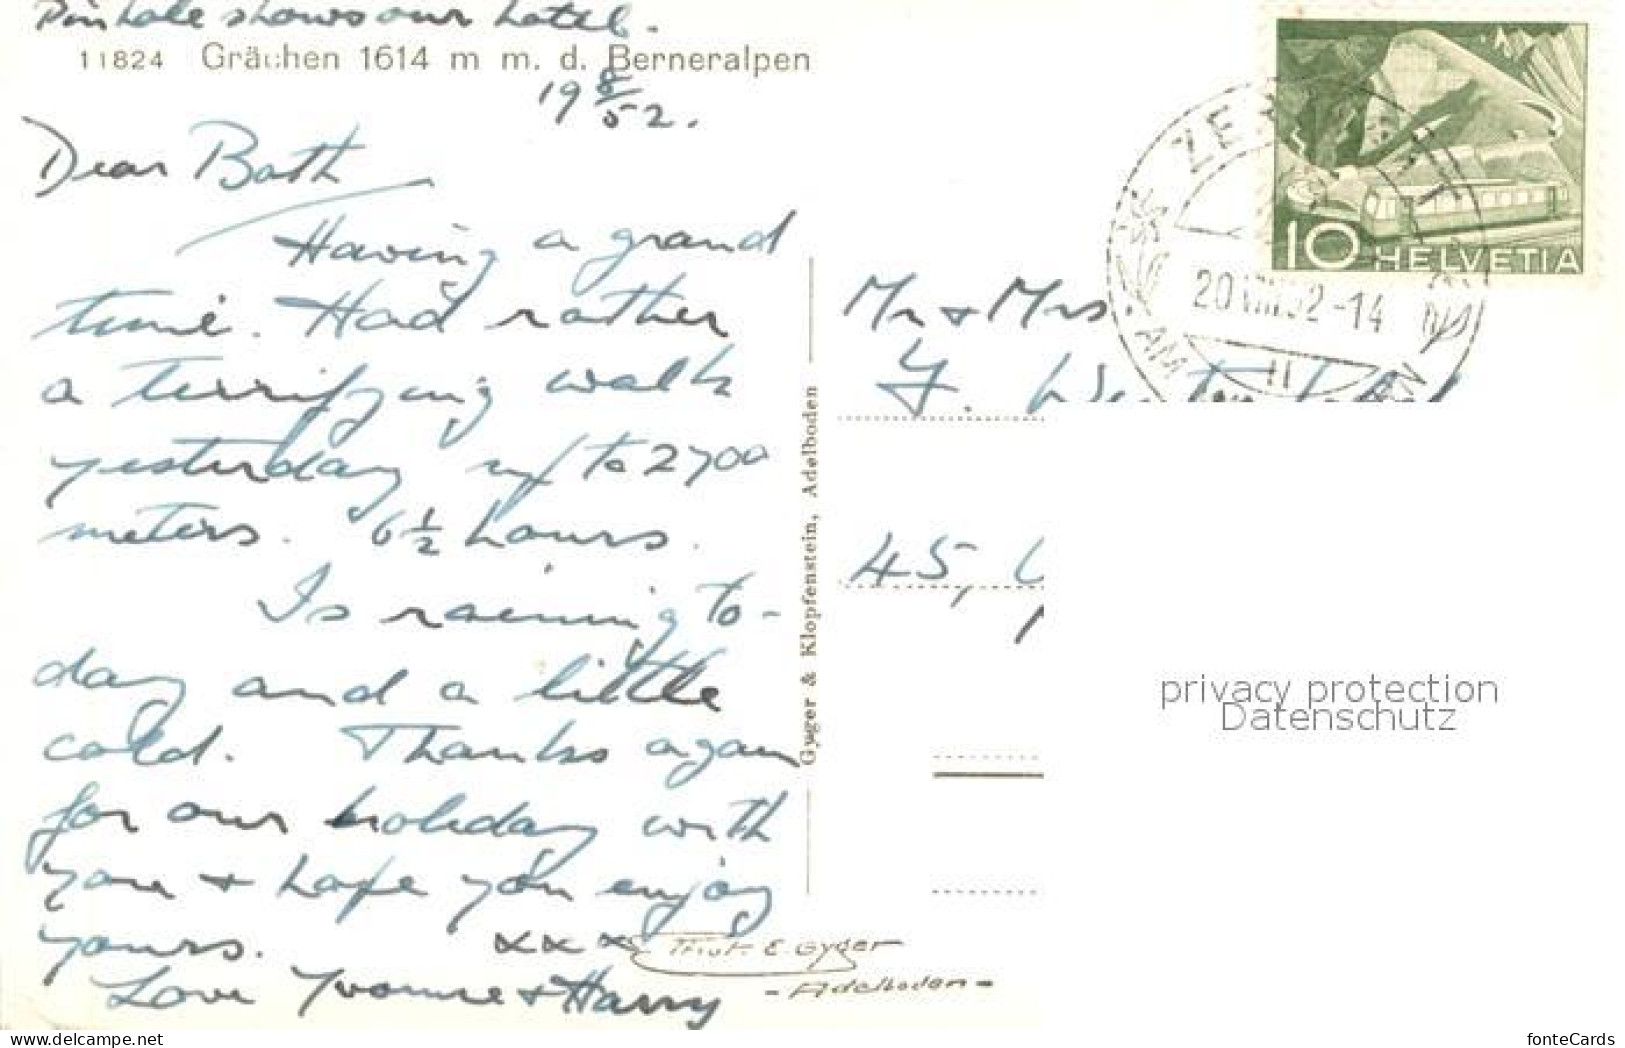 Pinhole shows our hotel.
11824 Grächen 1614 m m. d. Berneralpen
19 8/52.
Dear Both
Having a grand
time. Had rather
a terrifying walk
yesterday up to 2700
meters. 6½ hours.
Is raining to-
day and a little
cold. Thanks again
for our holiday with
you + hope you enjoy
yours. xxx
Love Yvonne + Harry
Phot. E. Gyger
- Adelboden -
Gyger & Klopfenstein, Adelboden
10 HELVETIA
ZERMATT
20 VIII 52 - 14
AM
Mr + Mrs
45,
privacy protection
Datenschutz
fonteCards
delcampe.net